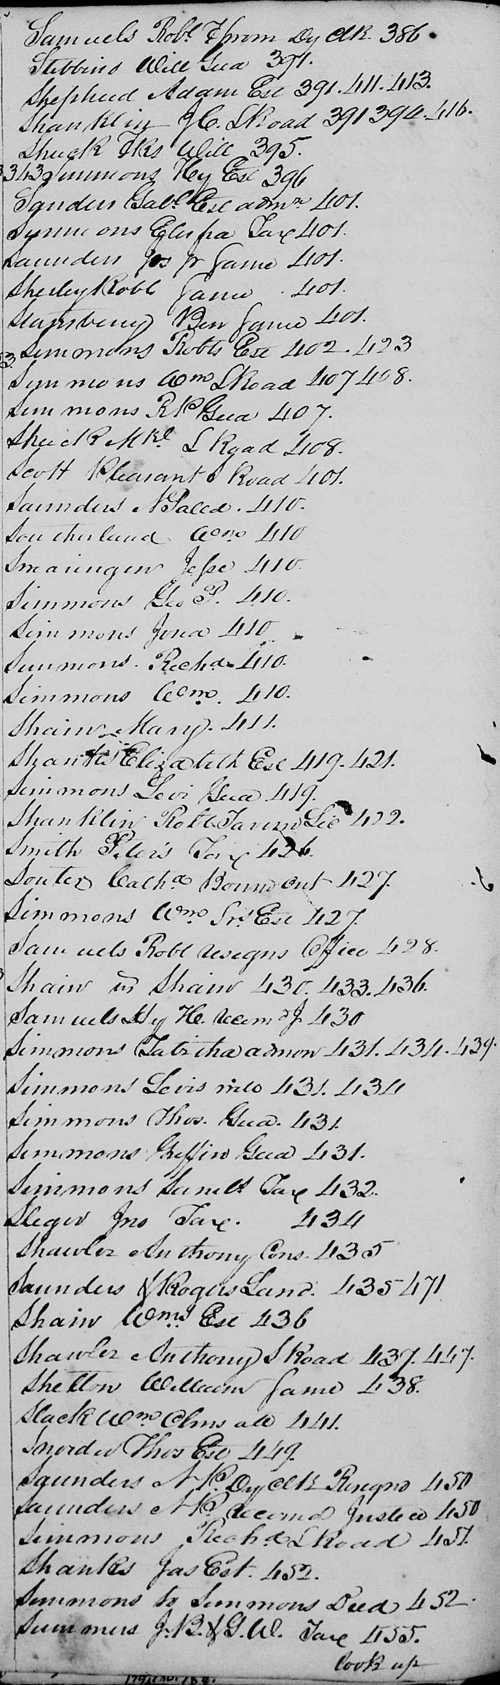 Samuels Robt from Dy Clk 386.
Stebbins Will Gua 391.
Shepherd Adam Est 391.411.413.
Shanklin Road 391 394.416.
Shuck Will 395.
Simmons Hy Est 396
Sanders Gabl Est admr 401.
Symmons Tax 401.
Saunders Jos Jr Same 401.
Sherley Robt Same 401.
Stansberry Ben Same 401.
Simmons Robts Est 402.423
Symmons Wm S Road 407 408.
Simmons R P Gua 407.
Shuck S Road 408.
Scott Pleasant S Road 401.
Saunders 410.
Southerland Wm 410
Swearingen Jesse 410
Simmons Geo P. 410.
Simmons Jona 410
Simmons Richd 410.
Simmons Wm. 410.
Shain Mary. 411.
Shanks Elizabeth Est 419.421.
Simmons Levi Gua 419.
Shanklin Robt Tavern Lic 422.
Smith Peters Tax 426.
Souter Cath Bound out 427.
Simmons Wm Srs Est 427.
Samuels Robt resigns Office 428.
Shain vs Shain 430.433.436.
Samuels Hy H. recomd J. 430
Simmons Tabitha admon 431.434.439.
Simmons Levis 431.434
Simmons Thos. Gua. 431
Simmons Griffin Gua 431.
Simmons Tax 432.
Sleger Jno Tax. 434
Shawler Anthony Cons. 435
Saunders & Rogers Land. 435 471
Shain Wms Est 436
Shawler Anthony S Road 437.447.
Shelton William Same 438.
Slack Wm 441.
Snyder Thos Est 449.
Saunders N P Dy Clk Resigns 450
Saunders N P recomd Justice 450
Simmons Richd S Road 451.
Shanks Jas Est. 452.
Simmons to Simmons Deed 452.
Summers J.B. & G.W. Tax 455.
look up